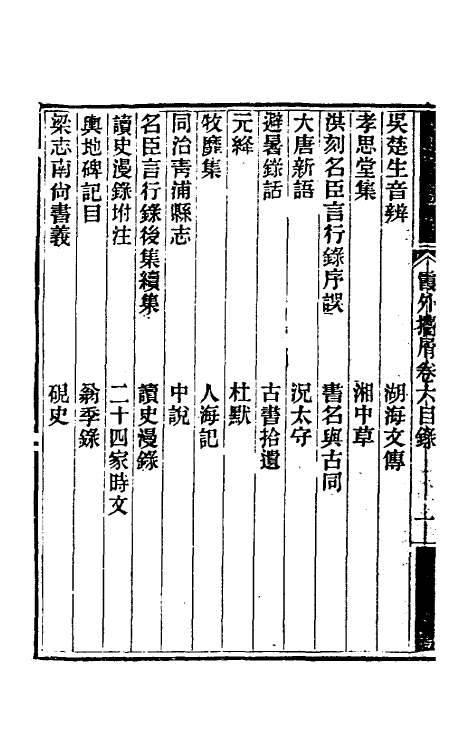 霞外攟屑卷六目錄
吳楚生音辨　湖海文傳
孝思堂集　湘中草
洪刻名臣言行錄序誤　書名與古同
大唐新語　況太守
避暑錄話　古書拾遺
元絳　杜默
牧齋集　人海記
同治靑浦縣志　中說
名臣言行錄後集續集　讀史漫錄
讀史漫錄坿注　二十四家時文
輿地碑記目　翁季錄
梁志南尙書義　硯史